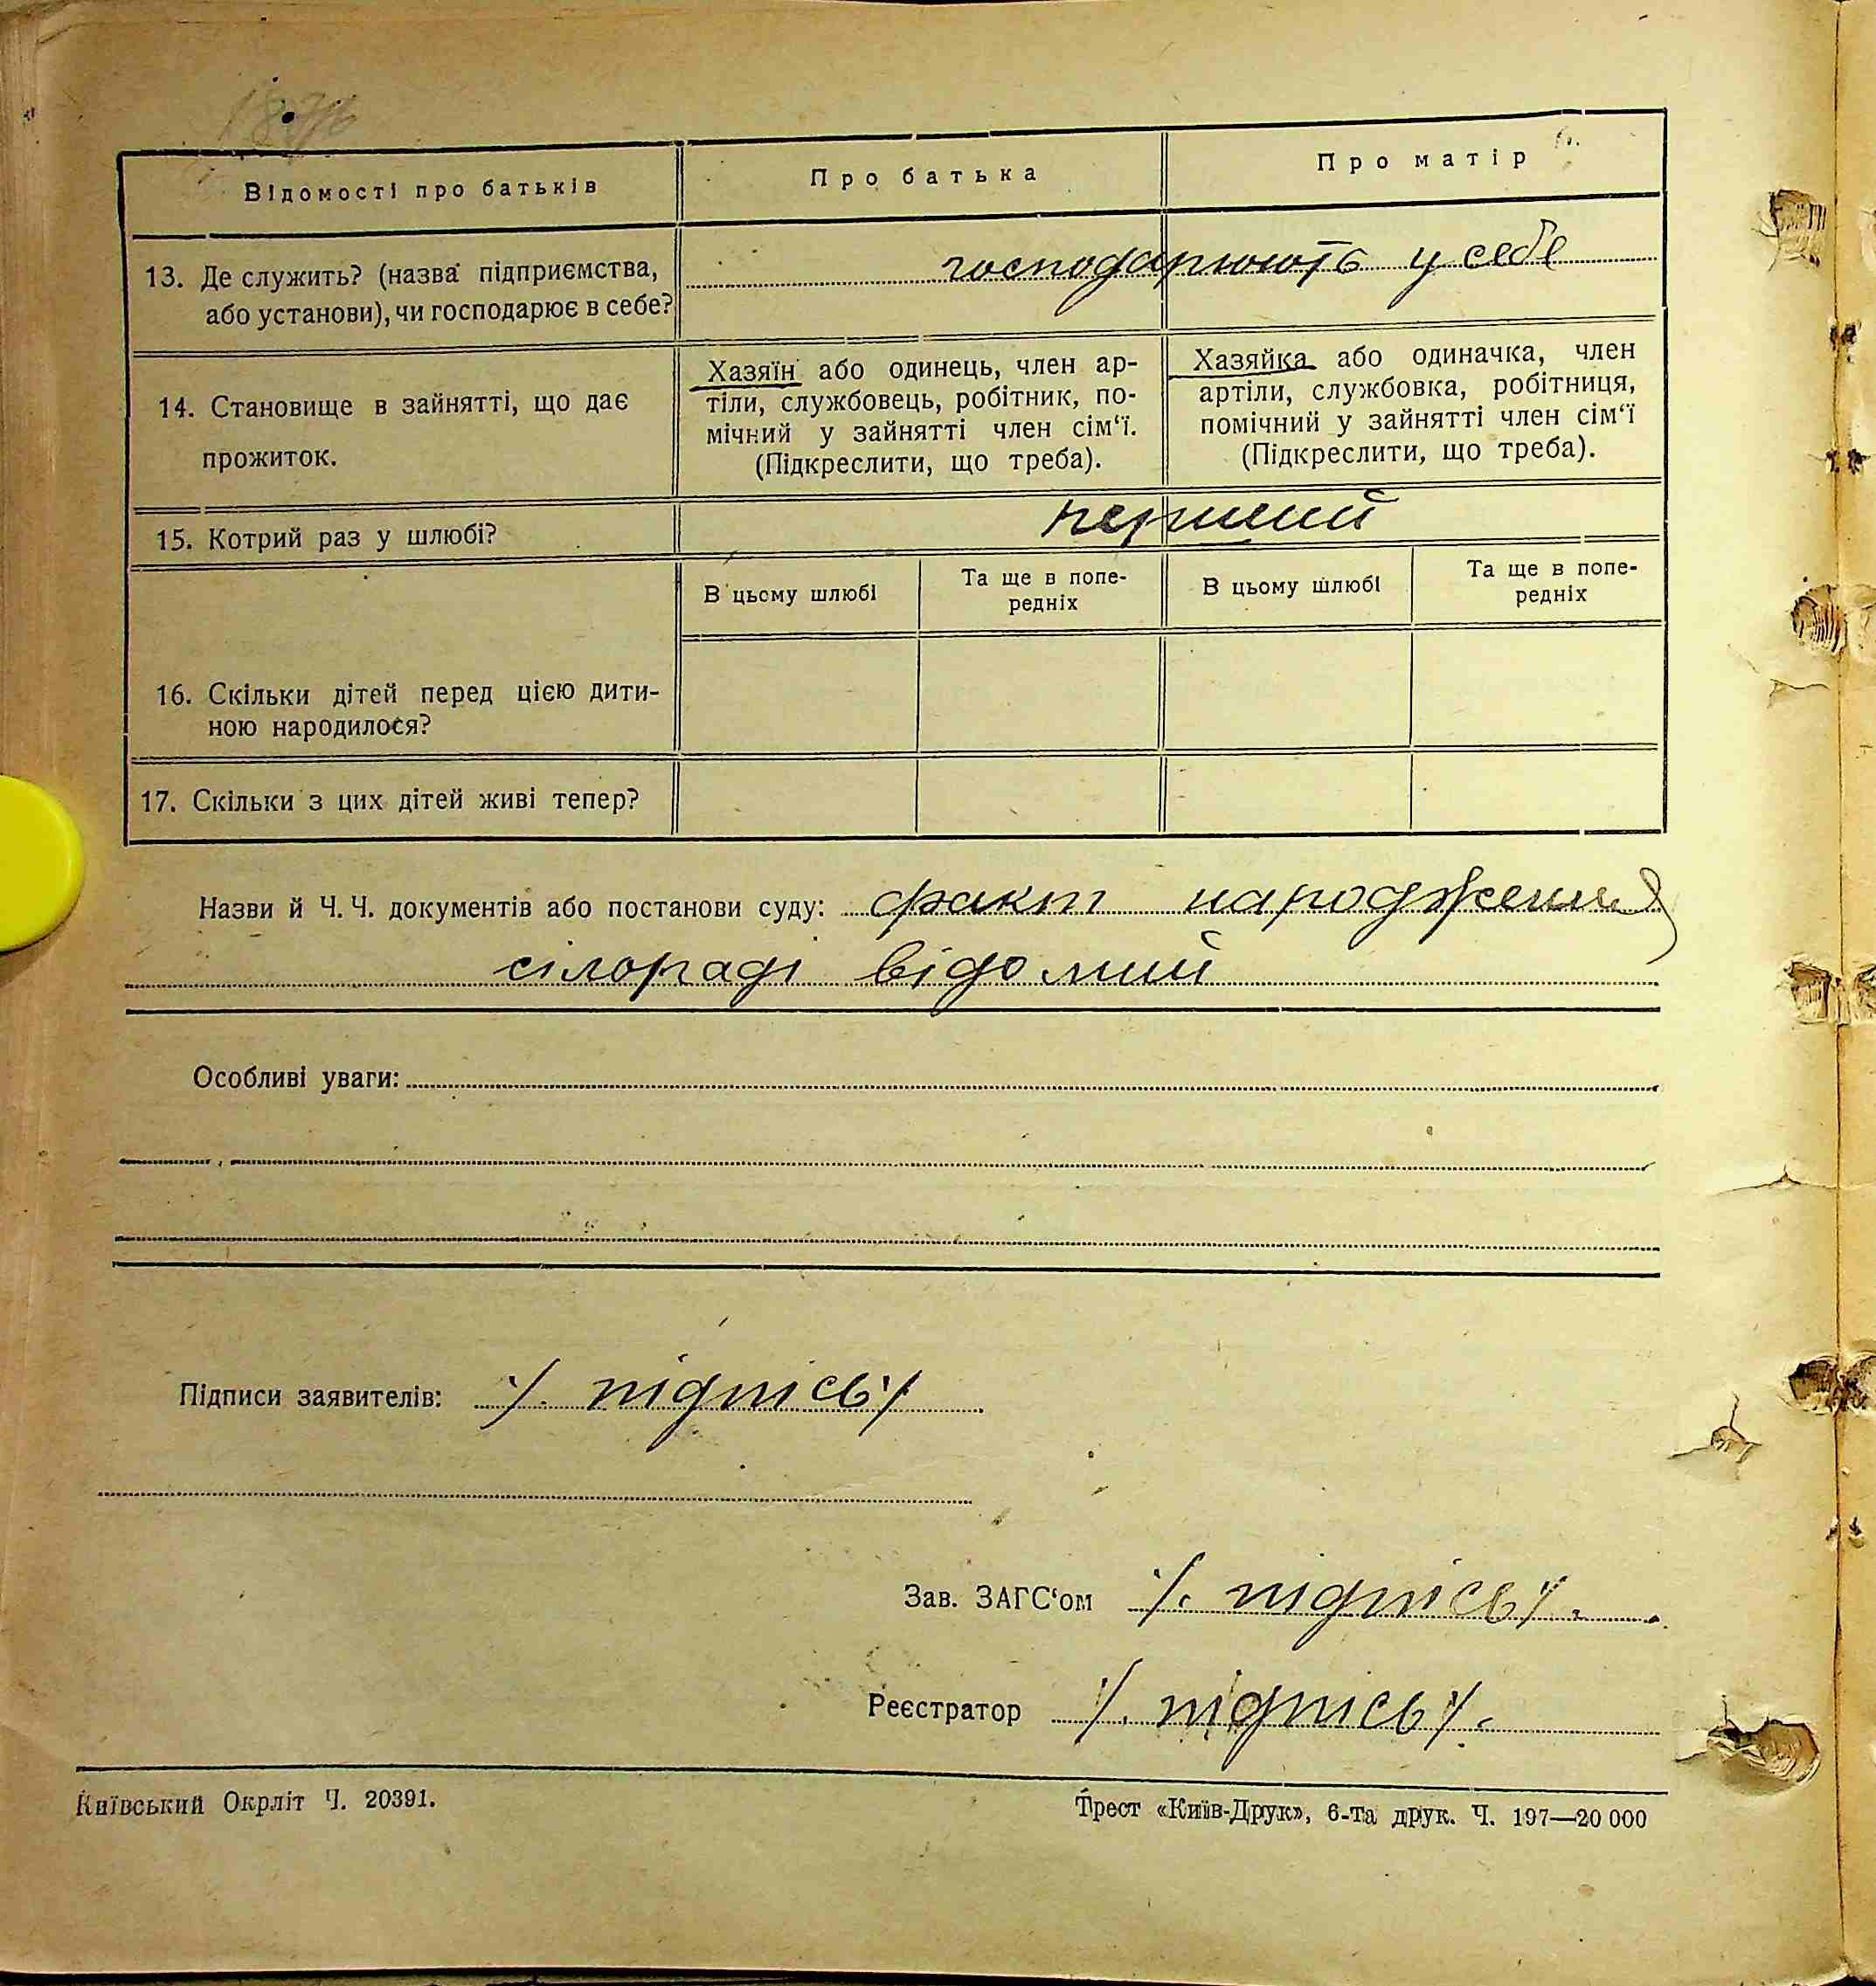 Відомості про батьків
Про батька
Про матір
13. Де служить? (назва підприємства,
або установи), чи господарює в себе?
господарюють у себе
14. Становище в зайнятті, що дає
прожиток.
Хазяїн або одинець, член ар-
тіли, службовець, робітник, по-
мічний у зайнятті член сім‘ї.
(Підкреслити, що треба).
Хазяйка або одиначка, член
артіли, службовка, робітниця,
помічний у зайнятті член сім‘ї
(Підкреслити, що треба).
15. Котрий раз у шлюбі?
перший
В цьому шлюбі
Та ще в попе-
редніх
В цьому шлюбі
Та ще в попе-
редніх
16. Скільки дітей перед цією дити-
ною народилося?
17. Скільки з цих дітей живі тепер?
Назви й Ч. Ч. документів або постанови суду: факт народження
сілораді відомий
Особливі уваги:
Підписи заявителів: /. підпісь/
Зав. ЗАГС‘ом /. підпісь/.
Реєстратор /. підпісь/.
Київський Окрліт Ч. 20391.
Трест «Київ-Друк», 6-та друк. Ч. 197—20 000